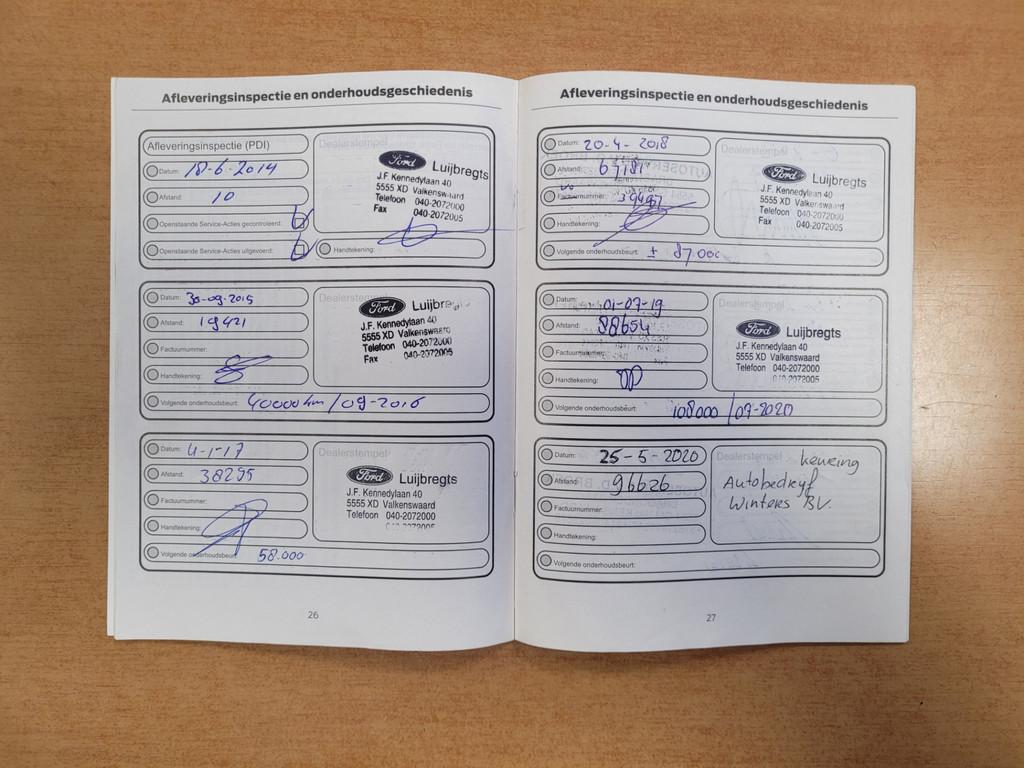 Afleveringsinspectie en onderhoudsgeschiedenis
Afleveringsinspectie (PDI)
Datum: 18-6-2014
Afstand: 10
Openstaande Service-Acties gecontroleerd:
Openstaande Service-Acties uitgevoerd:
Dealerstempel
Ford Luijbregts
J.F. Kennedylaan 40
5555 XD Valkenswaard
Telefoon 040-2072000
Fax 040-2072005
Handtekening:
Datum: 30-09-2015
Afstand: 19421
Factuurnummer:
Handtekening:
Volgende onderhoudsbeurt: 40000km/09-2016
Dealerstempel
Ford
J.F. Kennedylaan 40
5555 XD Valkenswaard
Telefoon 040-2072000
Fax 040-2072005
Datum: 4-1-17
Afstand: 38295
Factuurnummer:
Handtekening:
Volgende onderhoudsbeurt: 58.000
Dealerstempel
Ford Luijbregts
J.F. Kennedylaan 40
5555 XD Valkenswaard
Telefoon 040-2072000
26
Afleveringsinspectie en onderhoudsgeschiedenis
Datum: 20-4-2018
Afstand:
Factuurnummer:
Handtekening:
Volgende onderhoudsbeurt: ± 87.000
Dealerstempel
Ford Luijbregts
J.F. Kennedylaan 40
5555 XD Valkenswaard
Telefoon 040-2072000
Fax 040-2072005
Datum: 01-07-19
Afstand: 88654
Factuurnummer:
Handtekening:
Volgende onderhoudsbeurt: 108000/07-2020
Dealerstempel
Ford Luijbregts
J.F. Kennedylaan 40
5555 XD Valkenswaard
Telefoon 040-2072000
Datum: 25-5-2020
Afstand: 96626
Factuurnummer:
Handtekening:
Volgende onderhoudsbeurt:
Dealerstempel
keuring
Autobedrijf
Winters BV.
27